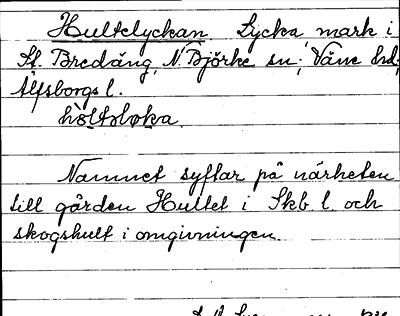 Hultelyckan. Lycka, mark i
St. Bredäng, N. Björke sn; Väne hd;
Älfsborgs l.
Namnet syftar på närheten
till gården Hultet i Skb. l. och
skogshult i omgivningen.